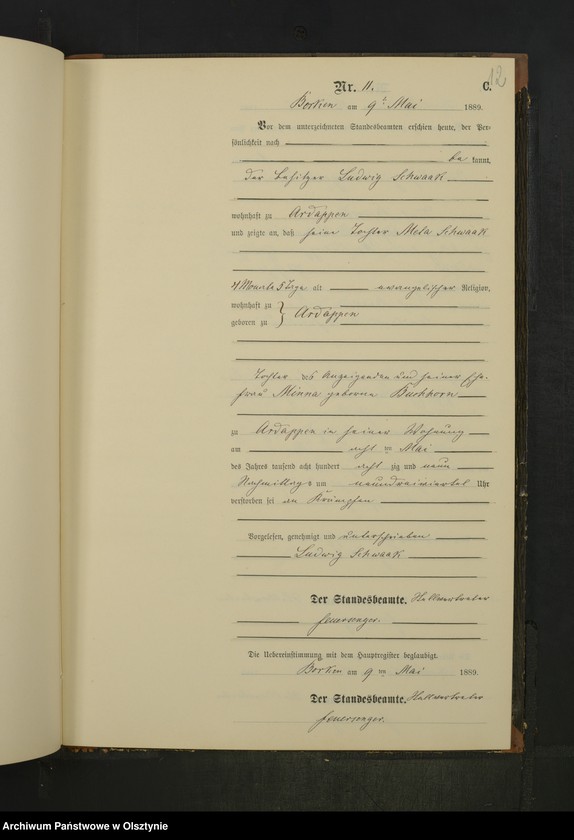 12
Nr. 11. C.
Borken am 9t Mai 1889.
Vor dem unterzeichneten Standesbeamten erschien heute, der Per-
sönlichkeit nach
be kannt,
der Besitzer Ludwig Schwaak
wohnhaft zu Ardappen
und zeigte an, daß seine Tochter Meta Schwaak
4 Monate 5 Tage alt evangelischer Religion,
wohnhaft zu
geboren zu } Ardappen
Tochter des Anzeigenden und seiner Ehe-
frau Minna geborne Buchhorn
zu Ardappen in seiner Wohnung
am acht ten Mai
des Jahres tausend acht hundert acht zig und neun
Nachmittags um neundreiviertel Uhr
verstorben sei an Krämpfen
Vorgelesen, genehmigt und unterschrieben
Ludwig Schwaak
Der Standesbeamte. Stellvertreter
Feuersenger.
Die Uebereinstimmung mit dem Hauptregister beglaubigt.
Borken am 9 ten Mai 1889.
Der Standesbeamte. Stellvertreter
Feuersenger.
Archiwum Państwowe w Olsztynie